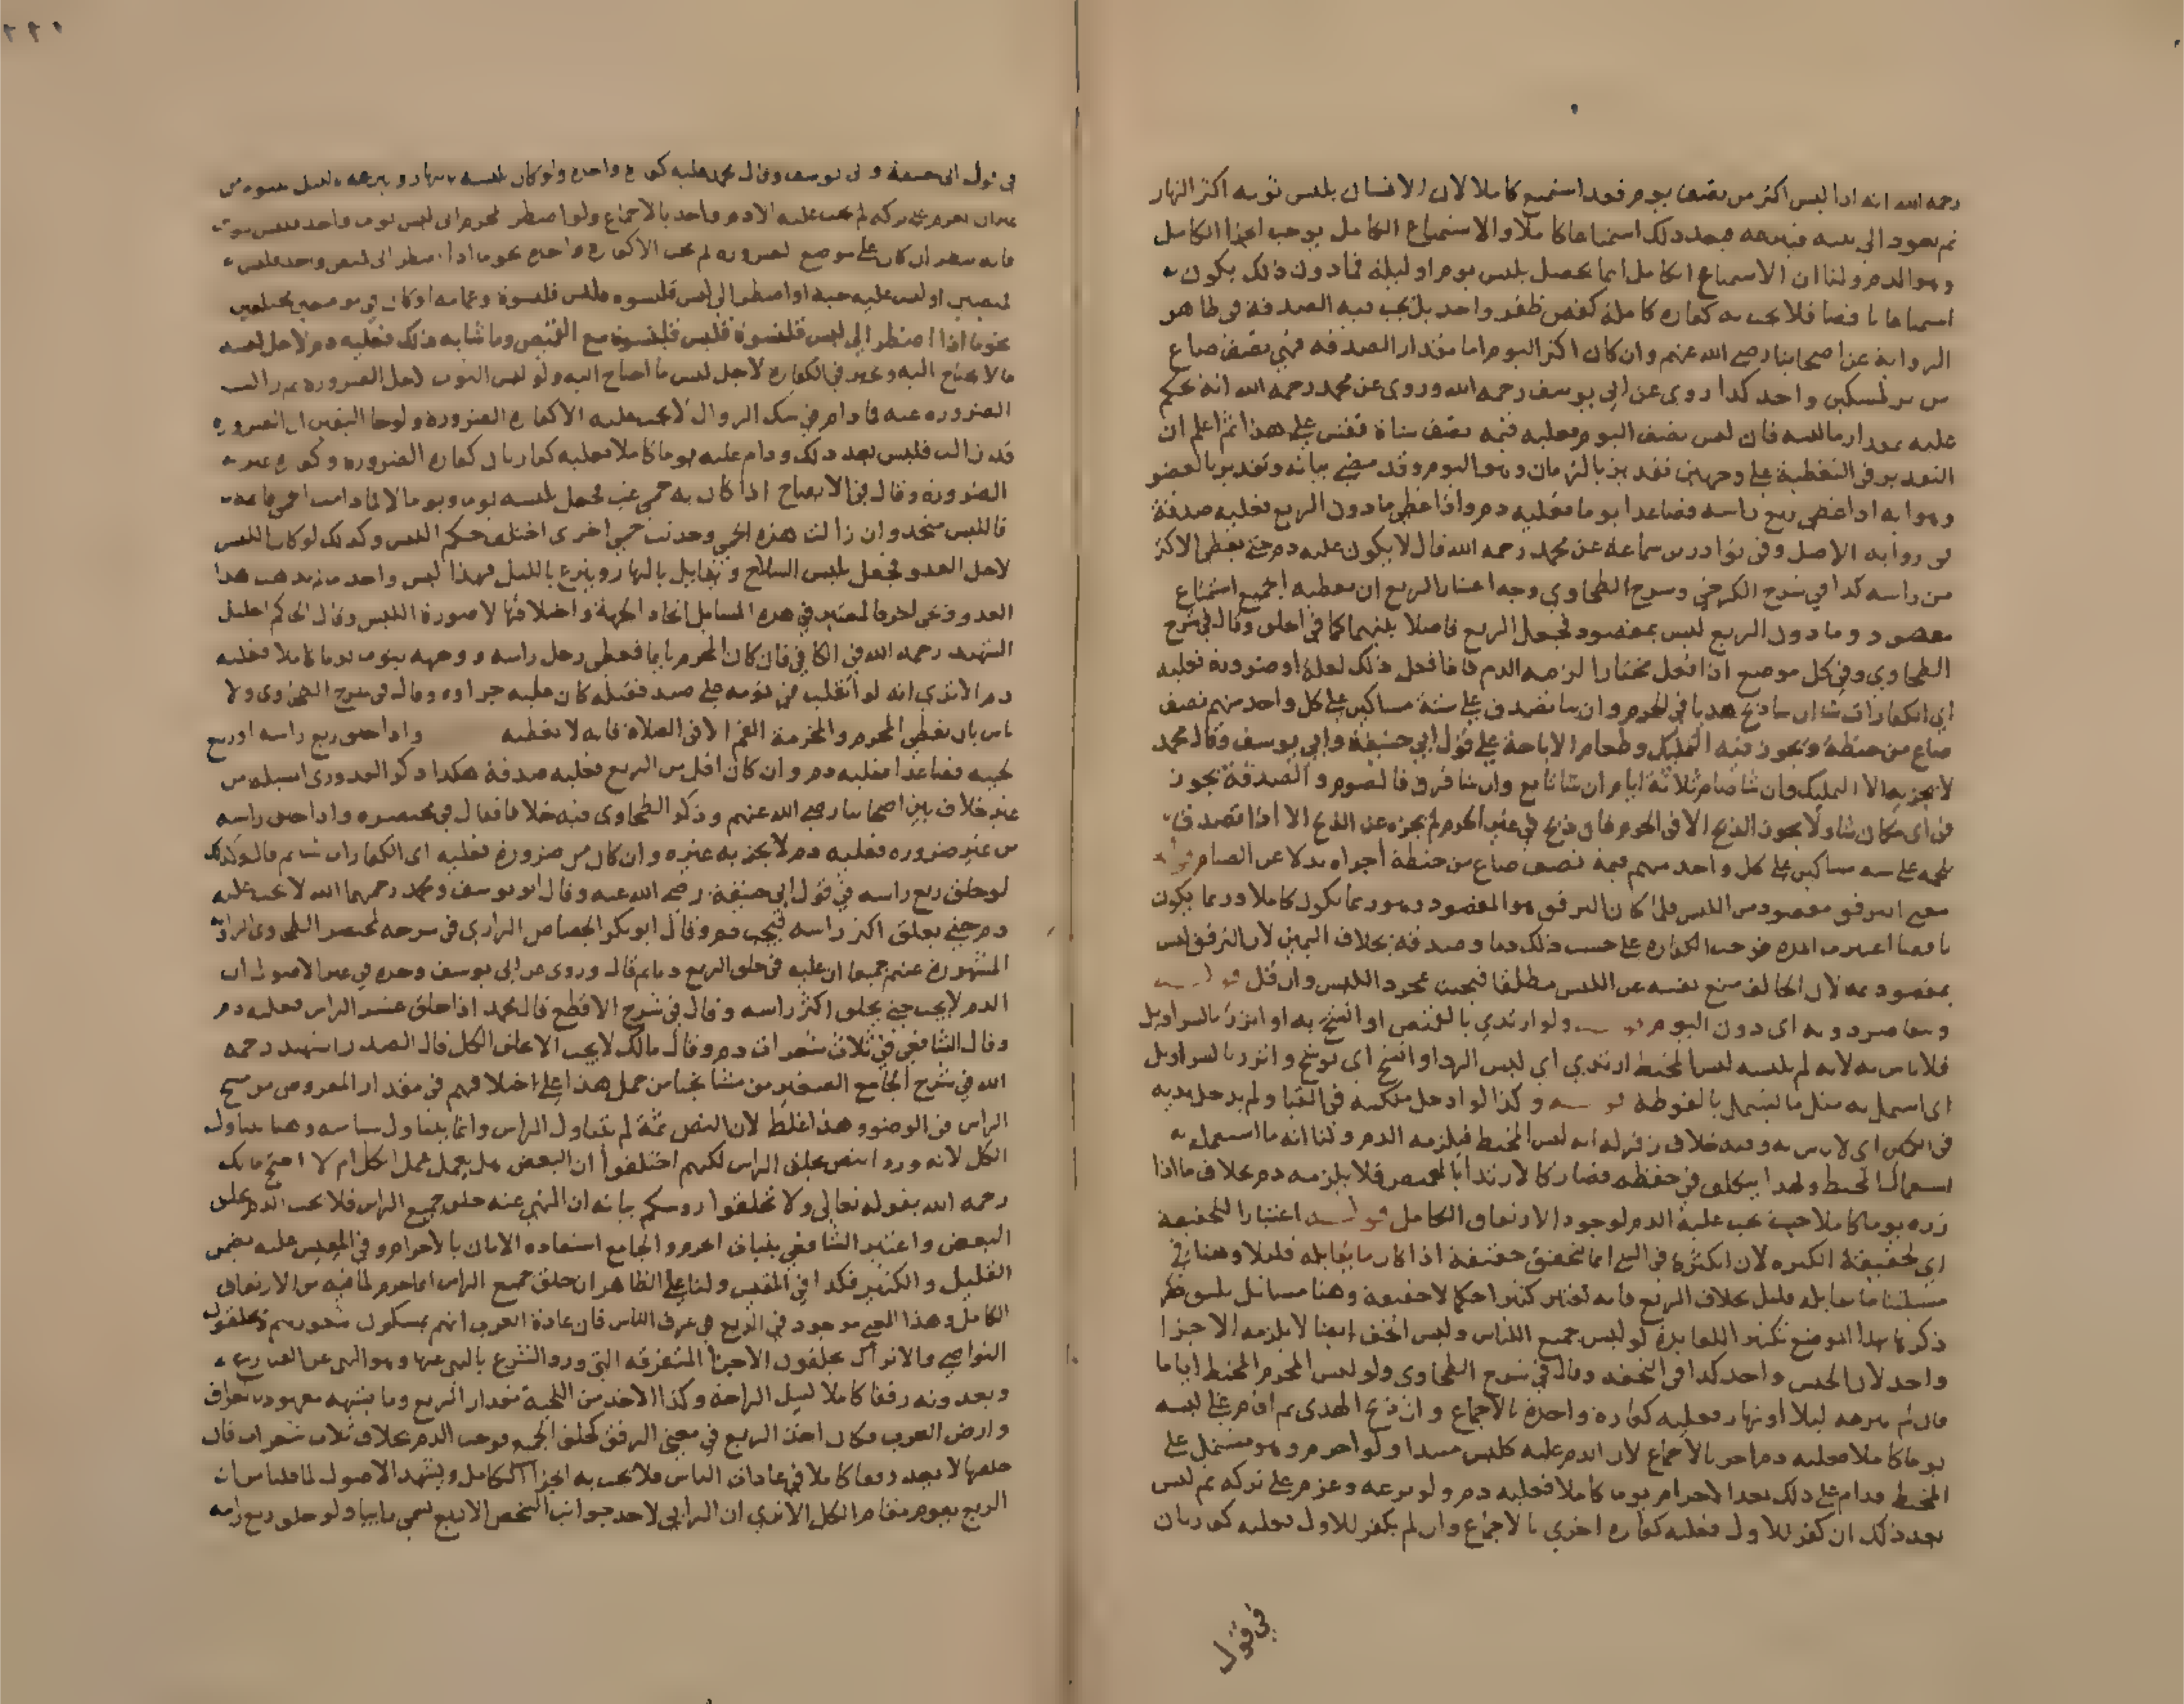 رحمه الله انه اذا لبس اكثر من نصف يوم فقد استمتع كاملا لان الانسان يلبس ثوبه اكثر النهار
ثم يعود الى بيته فينزعه فيعد ذلك استمتاعا كاملا والاستمتاع الكامل يوجب الجزا الكامل
وهو الدم ولنا ان الاستمتاع الكامل انما يحصل بلبس يوم او ليلة فما دون ذلك يكون
استمتاعا ناقصا فلا يجب به كفارة كاملة كقص ظفر واحد بل يجب فيه الصدقة في ظاهر
الرواية عن اصحابنا رضي الله عنهم وان كان اكثر اليوم اما مقدار الصدقة فهي نصف صاع
من بر لمسكين واحد كذا روي عن ابي يوسف رحمه الله وروي عن محمد رحمه الله انه يحكم
عليه بمقدار ما لبسه فان لبس نصف اليوم فعليه قيمة نصف شاة فقس على هذا ثم اعلم ان
التقدير في التغطية على وجهين تقدير بالزمان وهو اليوم وقد مضى بيانه وتقدير بالعضو
وهو انه اذا غطى ربع راسه فصاعدا يوما فعليه دم واذا غطى ما دون الربع فعليه صدقة
في رواية الاصل وفي نوادر بن سماعة عن محمد رحمه الله قال لا يكون عليه دم حتى يغطى الاكثر
من راسه كذا في شرح الكرخي وشرح الطحاوي وجه اعتبار الربع ان تغطية الجميع استمتاع
مقصود وما دون الربع ليس بمقصود فجعل الربع فاصلا بينهما كما في الحلق وقال في شرح
الطحاوي وفي كل موضع اذا فعل مختارا لزمه الدم فاذا فعل ذلك لعلة او ضرورة فعليه
اي الكفارات شا ان شا ذبح هديا في الحرم وان شا تصدق على ستة مساكين على كل واحد منهم نصف
صاع من حنطة ويجوز فيه التمليك وطعام الاباحة على قول ابي حنيفة وابي يوسف وقال محمد
لا يجزيه الا التمليك وان شا صام ثلاثة ايام ان شا تابع وان شا فرق فالصوم والصدقة يجوز
في اي مكان شا ولا يجوز الذبح الا في الحرم فان ذبح في غير الحرم لم يجزه عن الذبح الا اذا تصدق
بلحمه على ستة مساكين على كل واحد منهم قيمة نصف صاع من حنطة اجزاه بدلا عن الطعام
معنى الترفق مقصود من اللبس فلما كان الترفق هو المقصود وهو ربما يكون كاملا وربما يكون
ناقصا اعتبرت المدة فوجبت الكفارة على حسب ذلك دما وصدقة بخلاف اليمين لان الترفق ليس
بمقصود ثمه لان الحالف منع نفسه عن اللبس مطلقا فيحنث بمجرد اللبس وان قل قوله
وتتقاصر دونه اي دون اليوم قوله ولو ارتدى بالقميص او اتشح به او اتزر بالسراويل
فلا باس به لانه لم يلبسه لبس المخيط ارتدى اي لبس الردا واتشح اي توشح واتزر بالسراويل
اي اشتمل به مثل ما يشتمل بالفوطة قوله وكذا لو ادخل منكبيه في القبا ولم يدخل يديه
في الكمين اي لا باس به وفيه خلاف زفر له انه لبس المخيط فيلزمه الدم ولنا انه ما استعمله
استعمال المخيط ولهذا يتكلف في حفظه فصار كالارتدا بالقميص فلا يلزمه دم بخلاف ما اذا
زره يوما كاملا حيث يجب عليه الدم لوجود الارتفاق الكامل قوله اعتبارا للحقيقة
اي لحقيقة الكثرة لان الكثرة في الشي انما تتحقق حقيقة اذا كان ما يقابله قليلا وهنا في
مسئلتنا ما يقابله قليل بخلاف الربع فانه يعتبر كثيرا حكما لا حقيقة وهنا مسائل يليق
ذكرها بهذا الموضع تكثيرا للفايدة لو لبس جميع اللباس ولبس الخف ايضا لا يلزمه الا جزا
واحد لان الجنس واحد كذا في التحفة وقال في شرح الطحاوي ولو لبس المحرم المخيط اياما
فان لم ينزعه ليلا او نهارا فعليه كفارة واحدة بالاجماع وان ذبح الهدي ثم اقام على لبسه
يوما كاملا فعليه دم اخر بالاجماع لان الدوام عليه كلبس مبتدا ولو احرم وهو مشتمل على
المخيط فدام على ذلك بعد الاحرام يوما كاملا فعليه دم ولو نزعه وعزم على تركه ثم لبس
بعد ذلك ان كفر للاول فعليه كفارة اخرى بالاجماع وان لم يكفر للاول فعليه كفارتان
في قول
٢٢١
في قول ابي حنيفة وابي يوسف وقال محمد عليه كفارة واحدة ولو كان يلبسه بالنهار وينزعه بالليل للنوم من
غير ان يعزم على تركه لم يجب عليه الا دم واحد بالاجماع ولو اضطر المحرم الى لبس ثوب واحد فلبس ثوبين
فانه ينظر ان كان على موضع الضرورة لم يجب الا كفارة واحدة نحو ما اذا اضطر الى قميص واحد فلبس
قميصين او لبس عليه جبة او اضطر الى لبس قلنسوة فلبس قلنسوة وعمامة او كان في موضعين مختلفين
نحو ما اذا اضطر الى لبس قلنسوة فلبس قلنسوة مع القميص وما شابه ذلك فعليه دم لاجل لبسه
ما لا يحتاج اليه ويخير في الكفارة لاجل لبس ما احتاج اليه ولو لبس الثوب لاجل الضرورة ثم زالت
الضرورة عنه فما دام في شك الزوال لا يجب عليه الا كفارة الضرورة ولو جا اليقين ان الضرورة
قد زالت فلبس بعد ذلك ودام عليه يوما كاملا فعليه كفارتان كفارة الضرورة وكفارة غير
الضرورة وقال في الايضاح اذا كان به حمى غب فجعل يلبسه يوما ويوما لا لما دامت الحمى قايمة
فاللبس متحد وان زالت هذه الحمى وحدثت حمى اخرى اختلف حكم اللبس وكذلك لو كان اللبس
لاجل العدو فجعل يلبس السلاح ويقاتل بالنهار وينزع بالليل فهذا لبس واحد ما لم يذهب هذا
العدو ويجي اخر فالمعتبر في هذه المسايل اتحاد الجهة واختلافها لا صورة اللبس وقال الحاكم الجليل
الشهيد رحمه الله في الكافي فان كان المحرم نايما فغطى رجل راسه ووجهه بثوب يوما كاملا فعليه
دم الا ترى انه لو انقلب في نومه على صيد فقتله كان عليه جزاوه وقال في شرح الطحاوي ولا
باس بان يغطي المحرم والمحرمة الفم الا في الصلاة فانه لا يغطيه واذا حلق ربع راسه او ربع
لحيته فصاعدا فعليه دم وان كان اقل من الربع فعليه صدقة هكذا ذكر القدوري المسئلة من
غير خلاف بين اصحابنا رضي الله عنهم وذكر الطحاوي فيه خلافا فقال في مختصره واذا حلق راسه
من غير ضرورة فعليه دم لا يجزيه غيره وان كان من ضرورة فعليه اي الكفارات شا ثم قال وكذلك
لو حلق ربع راسه في قول ابي حنيفة رضي الله عنه وقال ابو يوسف ومحمد رحمهما الله لا يجب عليه
دم حتى يحلق اكثر راسه فيجب دم وقال ابو بكر الجصاص الرازي في شرحه لمختصر الطحاوي الرواية
المشهورة عنهم جميعا ان عليه في حلق الربع دما ثم قال وروي عن ابي يوسف وحده في غير الاصول ان
الدم لا يجب حتى يحلق اكثر راسه وقال في شرح الاقطع قال محمد اذا حلق عشر الراس فعليه دم
وقال الشافعي في ثلاث شعرات دم وقال مالك لا يجب الا بحلق الكل قال الصدر الشهيد رحمه
الله في شرح الجامع الصغير من مشايخنا من حمل هذا على اختلافهم في مقدار المفروض من مسح
الراس في الوضوء وهذا غلط لان النص ثمة لم يتناول الراس وانما يتناول بباسه وهنا يتناول
الكل لانه ورد النص بحلق الراس لكنهم اختلفوا ان البعض هل يعمل عمل الكل ام لا احتج مالك
رحمه الله بقوله تعالى ولا تحلقوا روسكم بيانه ان النهي عنه حلق جميع الراس فلا يجب الدم بحلق
البعض واعتبر الشافعي بنبات الحرم والجامع استفادة الامان بالاحرام وفي المقيس عليه يضمن
القليل والكثير فكذا في المقيس ولنا على الظاهر ان حلق جميع الراس انما حرم لما فيه من الارتفاق
الكامل وهذا المعنى موجود في الربع في عرف الناس فان عادة العرب انهم يمسكون شعورهم ويحلقون
النواصي والاتراك يحلقون الاجزا المتفرقة التي ورد الشرع بالنهي عنها وهو النهي عن القنازع
ويعدونه رفقا كاملا لنيل الراحة وكذا الاخذ من اللحية مقدار الربع وما يشبهه معهود بالعراق
وارض العرب فكان اخذ الربع في معنى الرفق كحلق الجميع فوجب الدم بخلاف ثلاث شعرات فان
حلقها لا يعد رفقا كاملا في عادات الناس فلا يجب به الجزا الكامل ويشهد الاصول لما قلنا من ان
الربع يقوم مقام الكل الا ترى ان الرائي لاحد جوانب الشخص الاربع يسمى رائيا ولو حلق ربع راسه